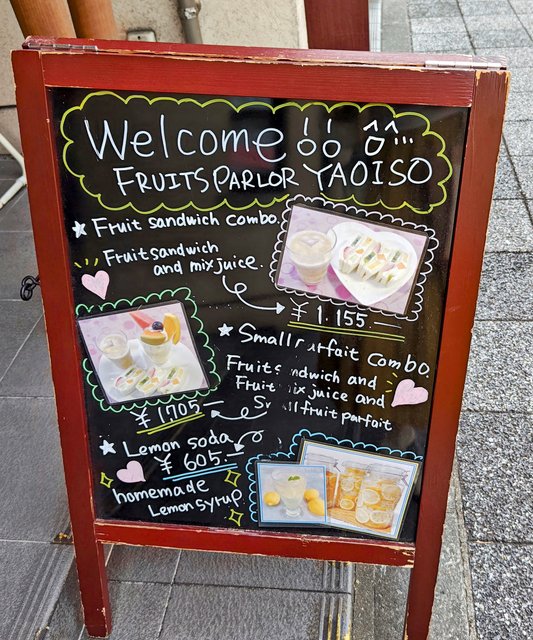 Welcome
FRUITS PARLOR YAOISO
Fruit sandwich combo.
Fruit sandwich
and mix juice.
¥ 1.155.—
Small parfait combo.
Fruit sandwich and
Fruit mix juice and
Small fruit parfait
¥ 1705—
Lemon soda
¥ 605.—
homemade
Lemon syrup